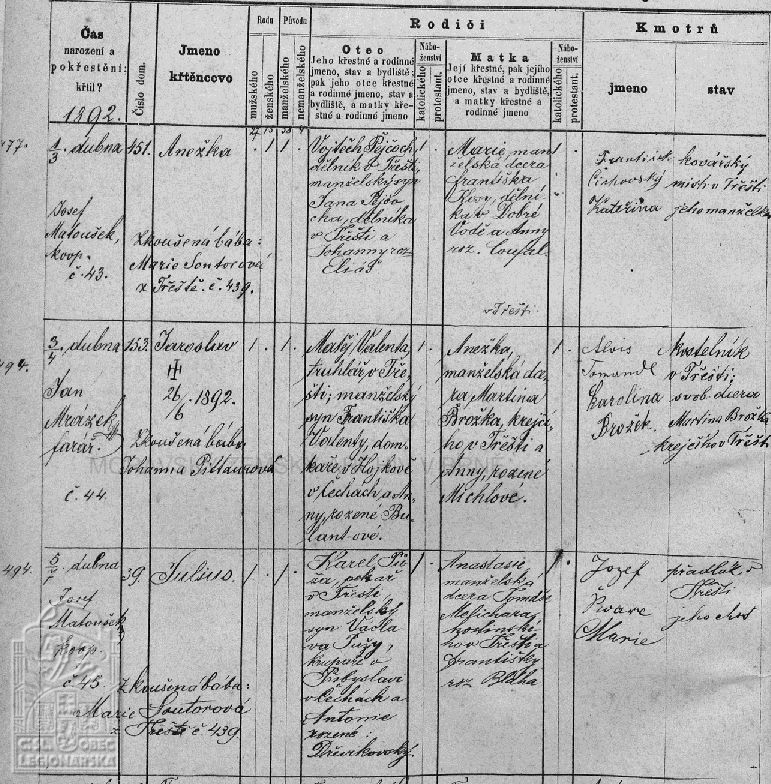 Čas
narození a
pokřestění;
křtil?
1892.
Číslo dom.
Jméno
křtěncovo
Rodu
mužského
ženského
Původu
manželského
nemanželského
Rodiči
Otec
Jeho křestné a rodinné
jméno, stav a bydliště;
pak jeho otce křestné
a rodinné jméno, stav a
bydliště, a matky kře-
stné a rodinné jméno
Nábo-
ženství
katolického
protestant.
Matka
Její křestné, pak jejího
otce křestné a rodinné
jméno, stav a bydliště,
a matky křestné a
rodinné jméno
Nábo-
ženství
katolického
protestant.
Kmotrů
jméno
stav
477.
1/3 dubna
Josef
Matoušek,
koop.
č. 43.
151.
Anežka
zkoušená bába:
Marie Soutorová
z Třeště. č. 439.
1
1
Vojtěch Pejčoch
dělník v Třešti,
manželský syn
Jana Pejčo-
cha, dělníka
v Třešti a
Johanny roz.
Eliáš
1
Marie, man-
želská dcera
Františka
dělní-
ka v Dobré
Vodě a Anny
roz. Coufal
v Třešti
František
Kateřina
kovářský
mistr v Třešti
jeho manželka
494.
3/4 dubna
Jan
Mrázek
farář.
č. 44.
153.
Jaroslav
26/6 1892.
Zkoušená bába
Johanna
1
1
Matěj Valenta,
truhlář v Tře-
šti; manželský
syn Františka
Valenty, dom-
kaře v Hojkově
v Čechách a An-
ny, rozené Bu-
lantové.
1
Anežka,
manželská dce-
ra Martina
Brožka, krejčí-
ho v Třešti a
Anny, rozené
Michlové.
1
Alois
Karolina
Brožek
Kostelník
v Třešti;
svob. dcera
Martina Brožka
krejčího v Třešti
494.
dubna
Josef
Matoušek
koop.
č. 45
39.
Julius.
zkoušená bába:
Marie Soutorová
z Třešti č 439
1
1
Karel
pekař
v Třešti,
manželský
syn Václa-
va
v Čechách a
Antonie
rozené
1
Anastasie
manželská
dcera Tomáše
hostinské-
ho v Třešti a
Františky
roz. Bláha
1
Jozef
Marie
v
Třešti
jeho choť
ČSL. OBEC
LEGIONÁŘSKÁ